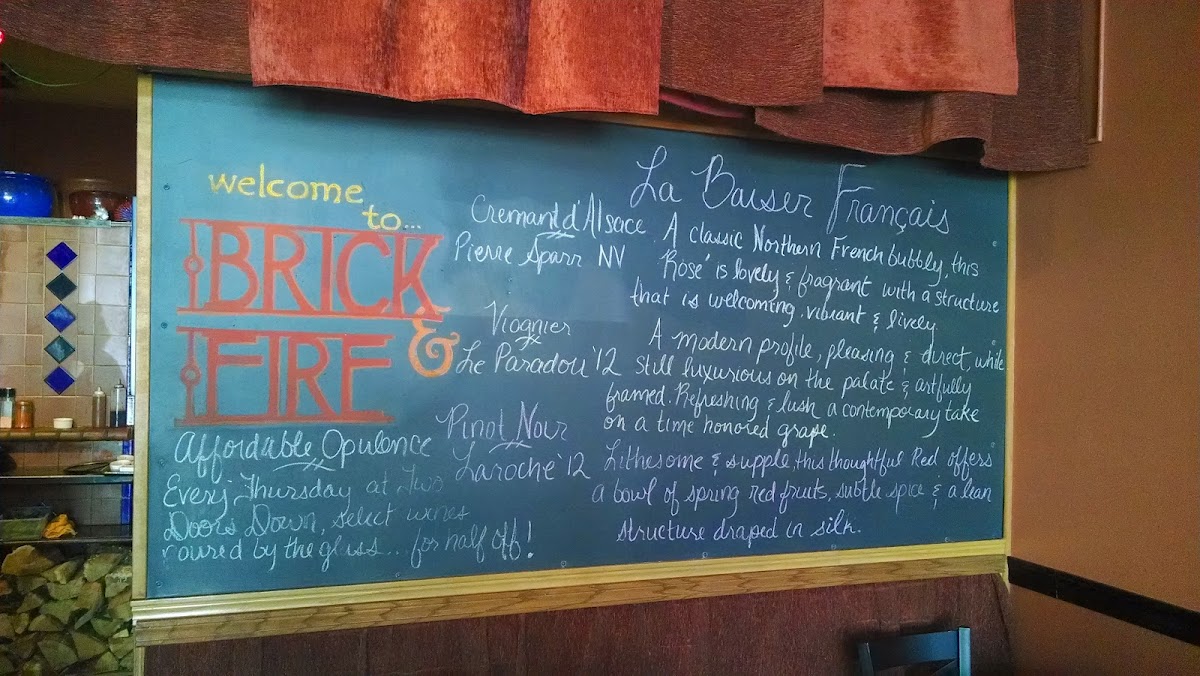 welcome
to...
BRICK
&
FIRE
Affordable Opulence
Every Thursday at Two
Doors Down, select wines
poured by the glass... for half off!
La Baiser Français
Cremant d'Alsace
Pierre Sparr NV
A classic Northern French bubbly, this
Rosé is lovely & fragrant with a structure
that is welcoming, vibrant & lively.
Viognier
Le Paradou '12
A modern profile, pleasing & direct, while
still luxurious on the palate & artfully
framed. Refreshing & lush a contemporary take
on a time honored grape.
Pinot Noir
Laroche '12
Lithesome & supple, this thoughtful Red offers
a bowl of spring red fruits, subtle spice & a lean
structure draped in silk.